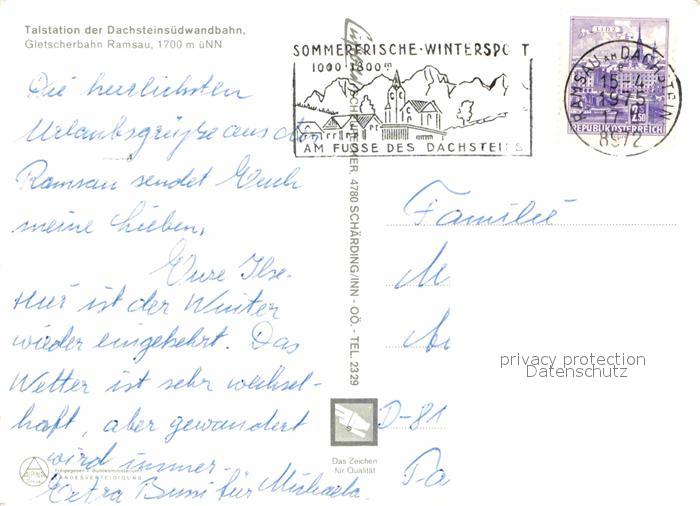 Talstation der Dachsteinsüdwandbahn,
Gletscherbahn Ramsau, 1700 m üNN
Die herzlichsten
Urlaubsgrüße aus der
Ramsau sendet Euch
meine Lieben,
Eure Ilse.
Hier ist der Winter
wieder eingekehrt. Das
Wetter ist sehr wechsel-
haft, aber gewandert
wird immer.
Extra Bussi für Michaela.
Freigegeben v. Bundesministerium f.
LANDESVERTEIDIGUNG
SOMMERFRISCHE-WINTERSPORT
1000-1300m
AM FUSSE DES DACHSTEINS
4780 SCHÄRDING/INN - OÖ. - TEL. 2329
Das Zeichen
für Qualität
LINZ
2.50
REPUBLIK ÖSTERREICH
RAMSAU AM DACHSTEIN
15.-4.
1975
17
8972
Familie
D-81
privacy protection
Datenschutz